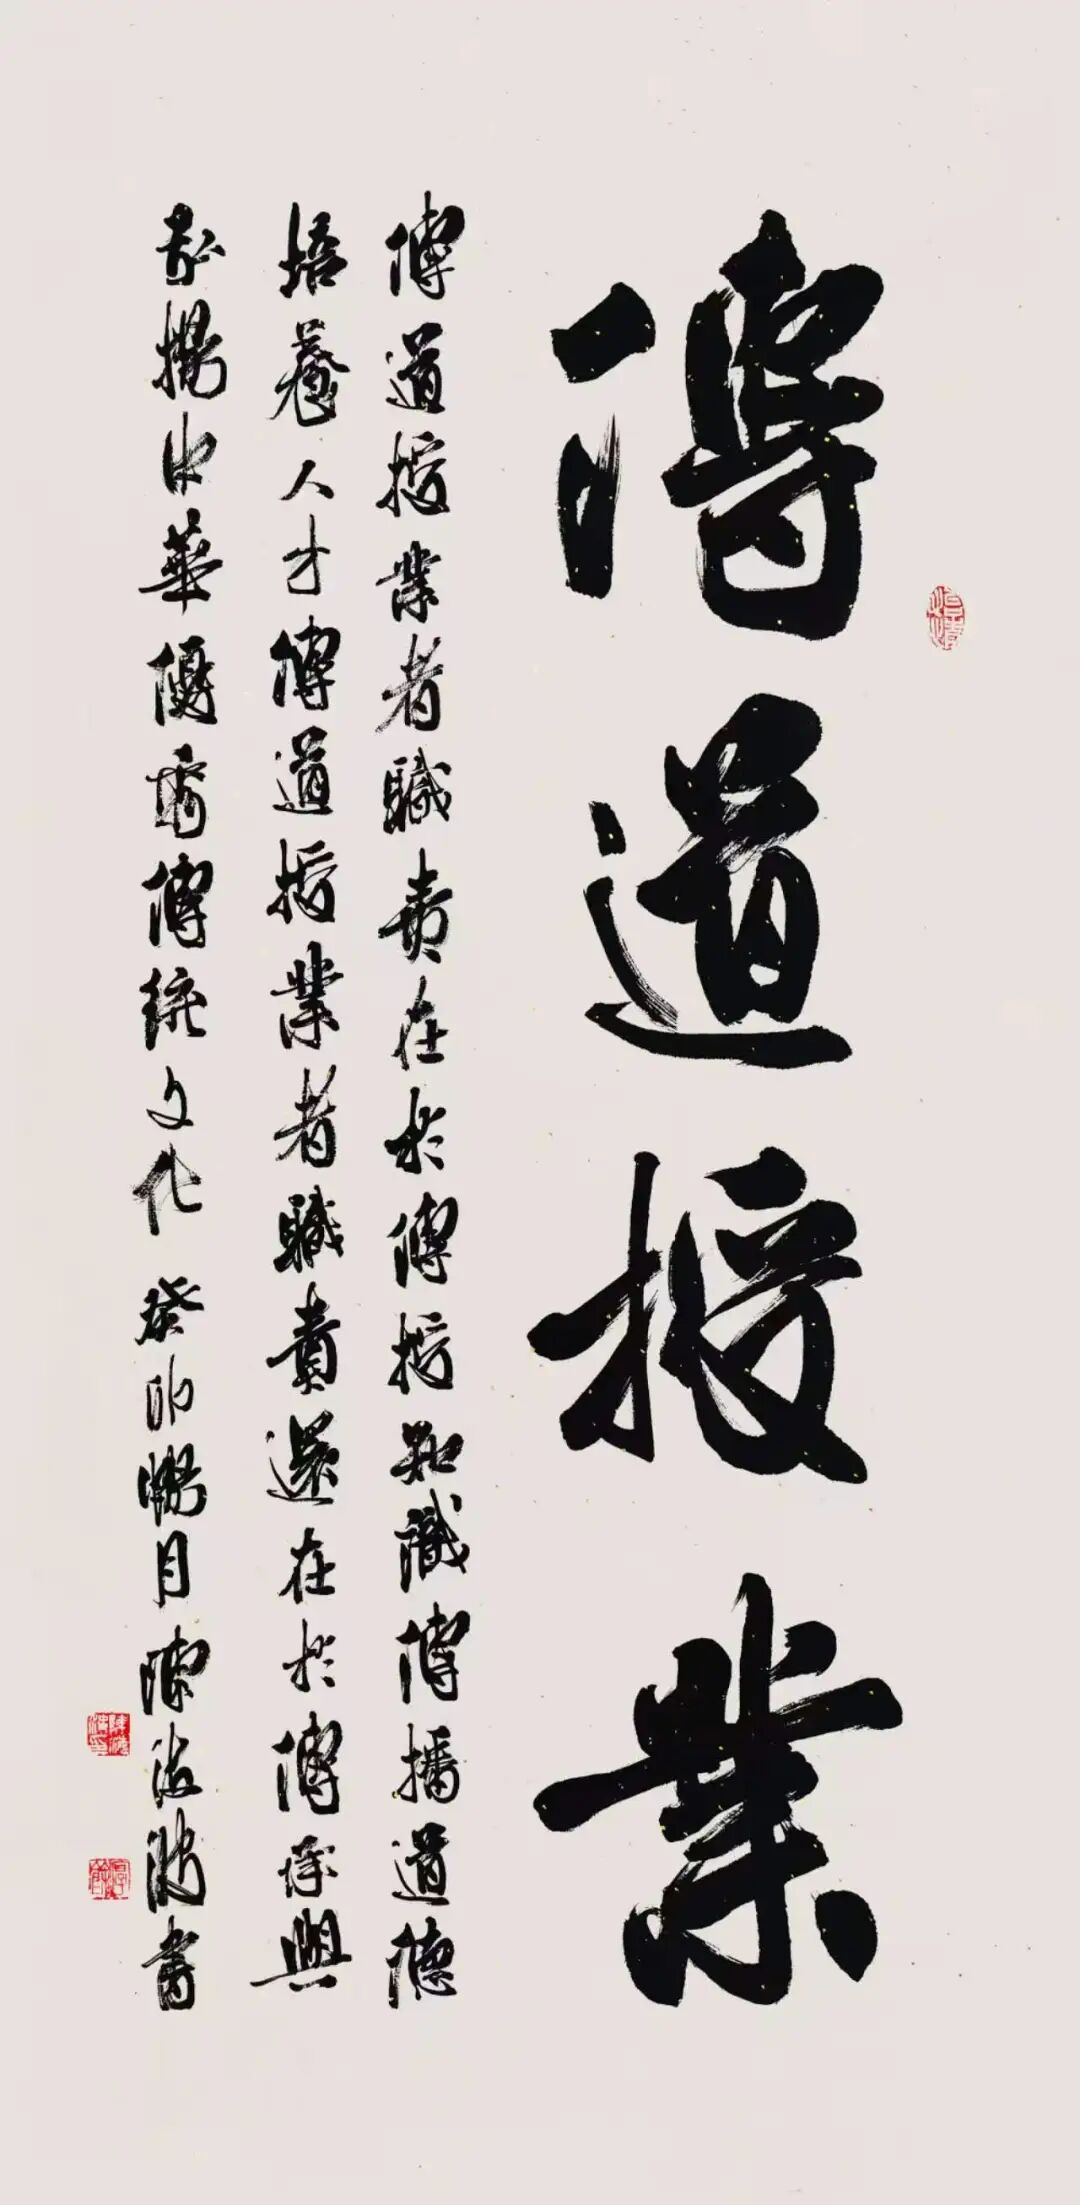 傳道授業
傳道授業者職責在於傳授知識傳播道德
培養人才傳道授業者職責還在於傳承與
弘揚中華優秀傳統文化 癸卯暢月陳書